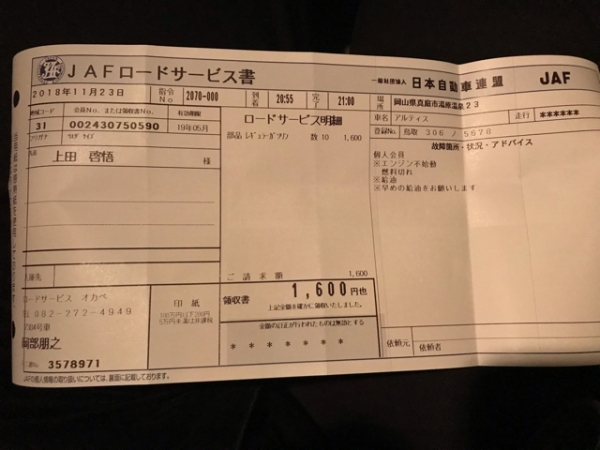 JAFロードサービス書
一般社団法人 日本自動車連盟 JAF
2018年11月23日
指令No 2070-000
到着 20:55 完了 21:00
場所 岡山県真庭市湯原温泉23
地域コード 会員No. または領収書No. 有効期限
31 002430750590 19年05月
車名 アルティス 走行 ******
登録No. 鳥取 306 / 5678
ロードサービス明細
部品 レギュラーガソリン 数 10 1,600
故障箇所・状況・アドバイス
個人会員
※エンジン不始動
燃料切れ
※給油
※早めの給油をお願いします
上田 啓悟 様
ご請求額 1,600
領収書 1,600円也
上記金額を確かに領収いたしました。
金額の訂正が行われたものは無効とする
* * * * * * *
ロードサービス オカベ
TEL 082-272-4949
印紙
阿部朋之
3578971
依頼元 依頼者
JAFの個人情報の取り扱いについては、裏面に記載しております。